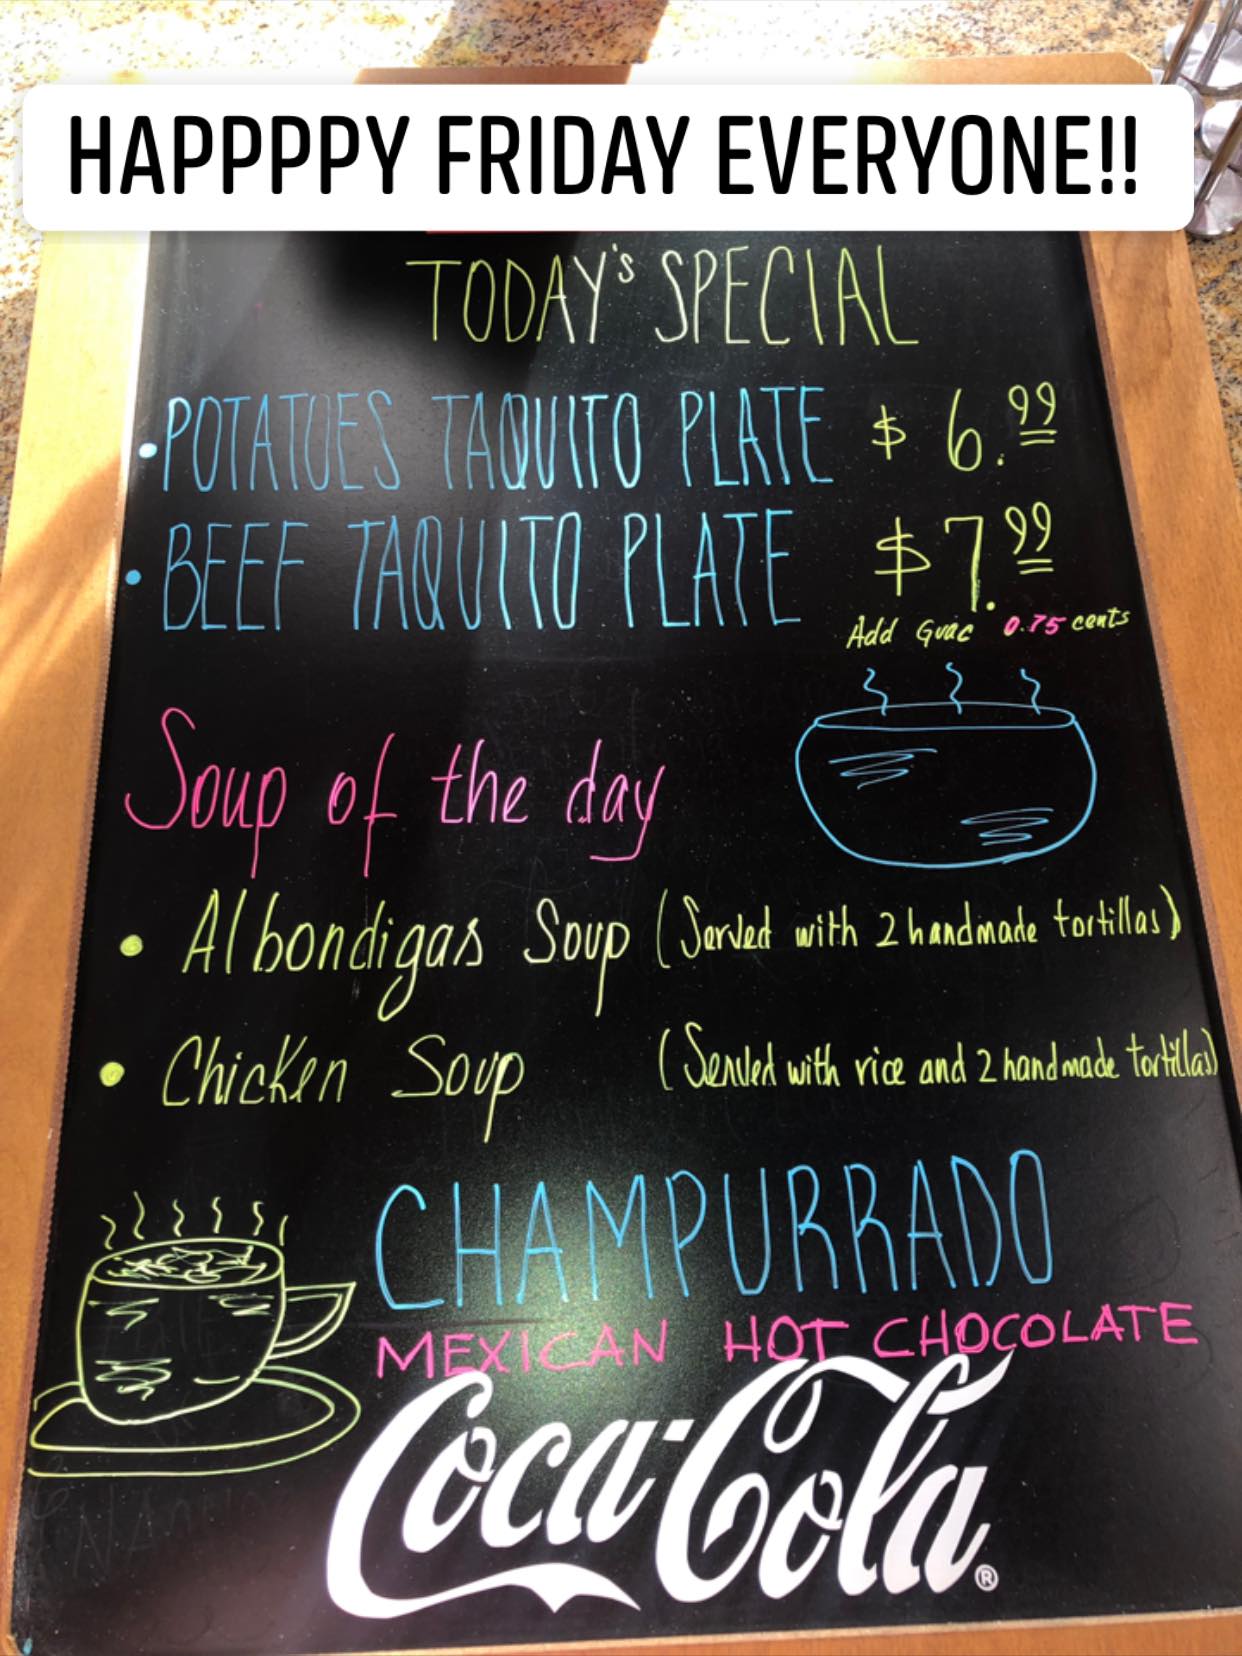 HAPPPPY FRIDAY EVERYONE!!
TODAY'S SPECIAL
• POTATOES TAQUITO PLATE $ 6.99
• BEEF TAQUITO PLATE $7.99
Add Guac 0.75 cents
Soup of the day
• Albondigas Soup (Served with 2 handmade tortillas)
• Chicken Soup (Served with rice and 2 handmade tortillas)
CHAMPURRADO
MEXICAN HOT CHOCOLATE
Coca-Cola®